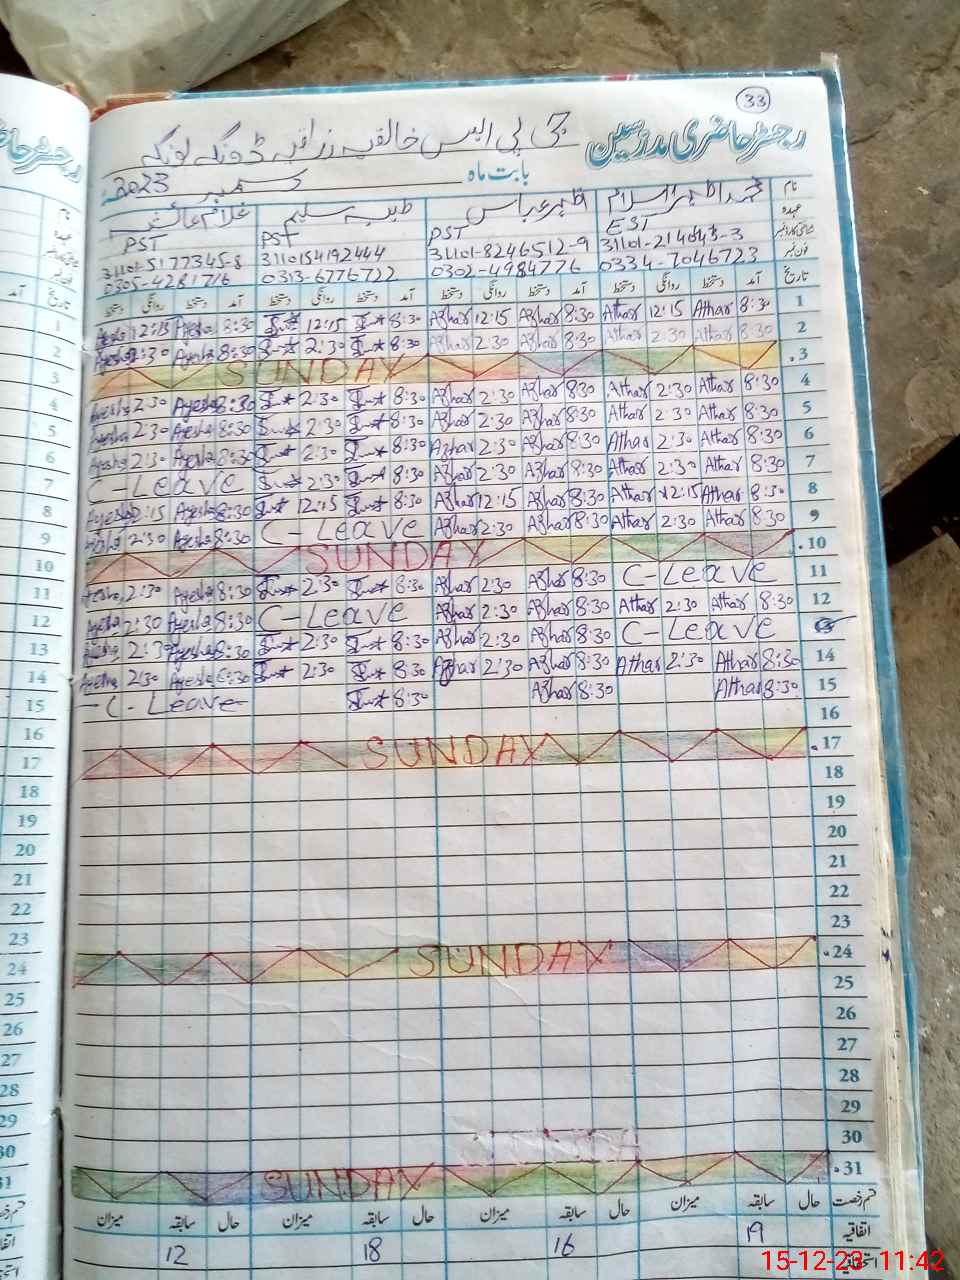 33
رجسٹر حاضری مدرسین
جی پی ایس خالقیہ ڈونگہ بونگہ
بابت ماہ دسمبر 2023ء
نام محمد اظہر اسلام اظہر عباس طیبہ سلیم غلام عائشہ
عہدہ EST PST PST PST
شناختی کارڈ نمبر 31101-8246512-9 3110154192444 31101-5177345-8
فون نمبر 0334-7046723 0302-4984776 0313-6776722 0305-4281716
تاریخ آمد دستخط روانگی دستخط آمد دستخط روانگی دستخط آمد دستخط روانگی دستخط آمد دستخط روانگی دستخط
1 8:30 Athar 12:15 Athar 8:30 Azhar 12:15 Azhar 8:30 12:15 8:30 Ayesha 12:15 Ayesha
2 8:30 Athar 2:30 Athar 8:30 Azhar 2:30 Azhar 8:30 2:30 8:30 Ayesha 2:30 Ayesha
3 SUNDAY
4 8:30 Athar 2:30 Athar 8:30 Azhar 2:30 Azhar 8:30 2:30 8:30 Ayesha 2:30 Ayesha
5 8:30 Athar 2:30 Athar 8:30 Azhar 2:30 Azhar 8:30 2:30 8:30 Ayesha 2:30 Ayesha
6 8:30 Athar 2:30 Athar 8:30 Azhar 2:30 Azhar 8:30 2:30 8:30 Ayesha 2:30 Ayesha
7 8:30 Athar 2:30 Athar 8:30 Azhar 2:30 Azhar 8:30 2:30 C-Leave
8 8:30 Athar 12:15 Athar 8:30 Azhar 12:15 Azhar 8:30 12:15 8:30 Ayesha 12:15 Ayesha
9 8:30 Athar 2:30 Athar 8:30 Azhar 2:30 Azhar C-Leave 8:30 Ayesha 2:30 Ayesha
10 SUNDAY
11 C-Leave 8:30 Azhar 2:30 Azhar 8:30 2:30 8:30 Ayesha 2:30 Ayesha
12 8:30 Athar 2:30 Athar 8:30 Azhar 2:30 Azhar C-Leave 8:30 Ayesha 2:30 Ayesha
13 C-Leave 8:30 Azhar 2:30 Azhar 8:30 2:30 8:30 Ayesha 2:30 Ayesha
14 8:30 Athar 2:30 Athar 8:30 Azhar 2:30 Azhar 8:30 2:30 8:30 Ayesha 2:30 Ayesha
15 8:30 Athar 8:30 Azhar 8:30 C-Leave
16
17 SUNDAY
18
19
20
21
22
23
24 SUNDAY
25
26
27
28
29
30
31 SUNDAY
قسم رخصت حال سابقہ میزان حال سابقہ میزان حال سابقہ میزان حال سابقہ میزان
اتفاقیہ 19 16 18 12
استحقاقیہ
15-12-23 11:42